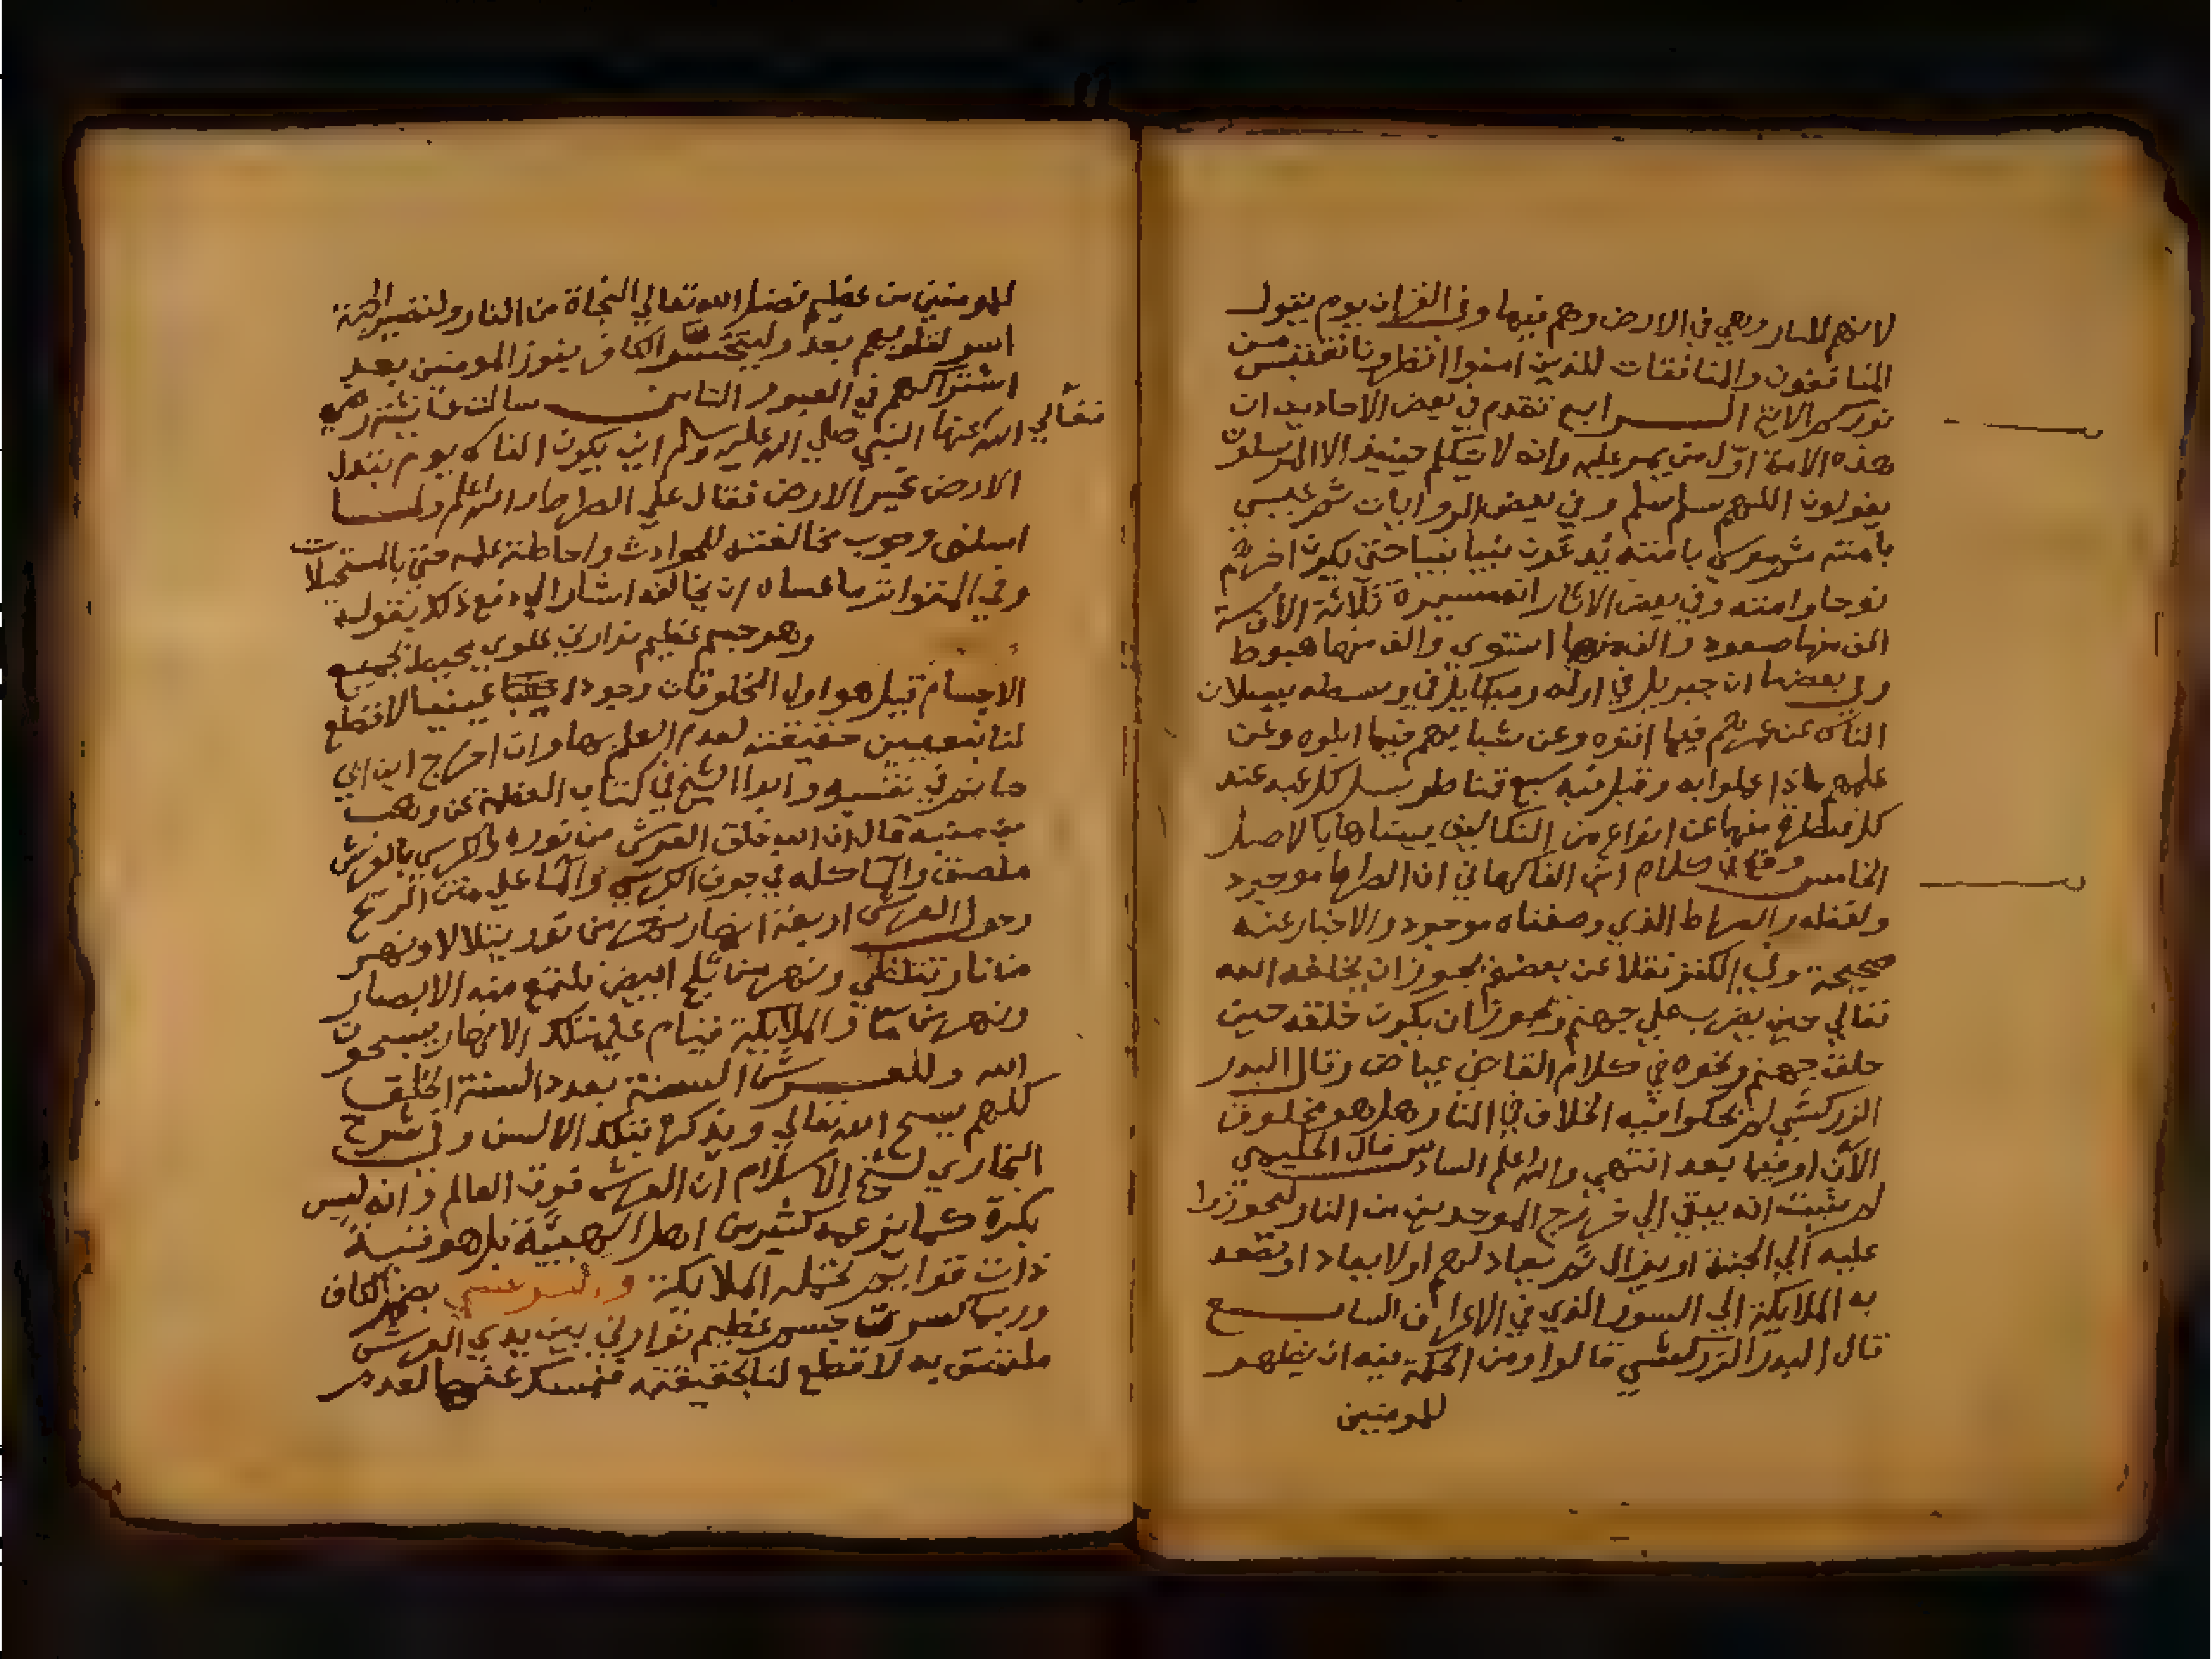 لانهم للنار وهي في الارض وهم فيها وفي القران يوم يقول
المنافقون والمنافقات للذين امنوا انظرونا نقتبس من
نوركم الاية الرابع تقدم في بعض الاحاديث ان
هذه الامة اول من يمر عليه وانه لا يتكلم حينيذ الا المرسلون
يقولون اللهم سلم سلم وفي بعض الروايات ثم عيسي
بامته ثم موسي بامته يدعون نبيا نبيا حتي يكون اخرهم
نوحا وامته وفي بعض الاثار انه مسيرة ثلاثة الاف سنة
الف منها صعود والف منها استوي والف منها هبوط
وفي بعضها ان جبريل في اوله وميكايل في وسطه يسيلان
الناس عن عمرهم فيما افنوه وعن شبابهم فيما ابلوه وعن
علمهم ماذا عملوا به وقيل فيه سبع قناطر يسيل كل عبد عند
كل قنطرة منها عن انواع من التكاليف بيناها بالاصل
الخامس وقع في كلام ابن الفاكهاني ان الصراط موجود
ولفظه والصراط الذي وصفناه موجود والاخبار عنه
صحيحة وفي الكنز نقلا عن بعضهم يجوز ان يخلقه الله
تعالي حين يضرب علي جهنم ويجوز ان يكون خلقه حين
خلق جهنم ونحوه في كلام القاضي عياض وقال البدر
الزركشي لم يحكوا فيه الخلاف في النار هل هو مخلوق
الآن او فيما بعد انتهي والله اعلم السادس قال الحليمي
لم يثبت انه يبقي الي خروج الموحدين من النار ليجوزوا
عليه الي الجنة او يزال ثم يعاد لهم او لا يعاد او تصعد
به الملايكة الي السور الذي في الاعراف السابع
قال البدر الزركشي قالوا ومن الحكمة فيه ان يظهر
للمومنين
للمومنين من عظيم فضل الله تعالي النجاة من النار ولتصير الجنة
اسر لقلوبهم بعد وليتحسر الكافر بفوز المومنين بعد
اشتراكهم في العبور الثامن سالت عايشة رضي
الله تعالي عنها النبي صلي الله عليه وسلم اين يكون الناس يوم تبدل
الارض غير الارض فقال علي الصراط والله اعلم ولما
اسلف وجوب مخالفته للحوادث واحاطة علمه حتي بالمستحيلات
وفي المتواتر ما عساه ان يخالفه اشار الي دفع ذلك بقوله
وهو جسم عظيم نوراني علوي محيط بجميع
الاجسام قيل هو اول المخلوقات وجودا عينيا لا قطع
لنا بتعيين حقيقته لعدم العلم بها وان اخرج ابن ابي
حاتم في تفسيره وابوا الشيخ في كتاب العظمة عن وهب
بن منبه قال ان الله خلق العرش من نوره والكرسي بالعرش
ملتصق والماء كله في جوف الكرسي والماء علي متن الريح
وحول العرش اربعة انهار نهر من نور يتلالا ونهر
من نار تتلظي ونهر من ثلج ابيض تلتمع منه الابصار
ونهر من ماء والملايكة قيام علي تلك الانهار يسبحون
الله وللعرش السنة بعدد السنة الخلق
كلهم يسبح الله تعالي ويذكره بتلك الالسن وفي شرح
البخاري لشيخ الاسلام ان العرش فوق العالم وانه ليس
بكرة كما يزعمه كثير من اهل الهيئة بل هو قبة
ذات قوايم تحمله الملايكة والكرسي بضم الكاف
وربما كسرت جسم عظيم نوراني بين يدي العرش
ملتصق به لا قطع لنا بحقيقته فنمسك عنها لعدم